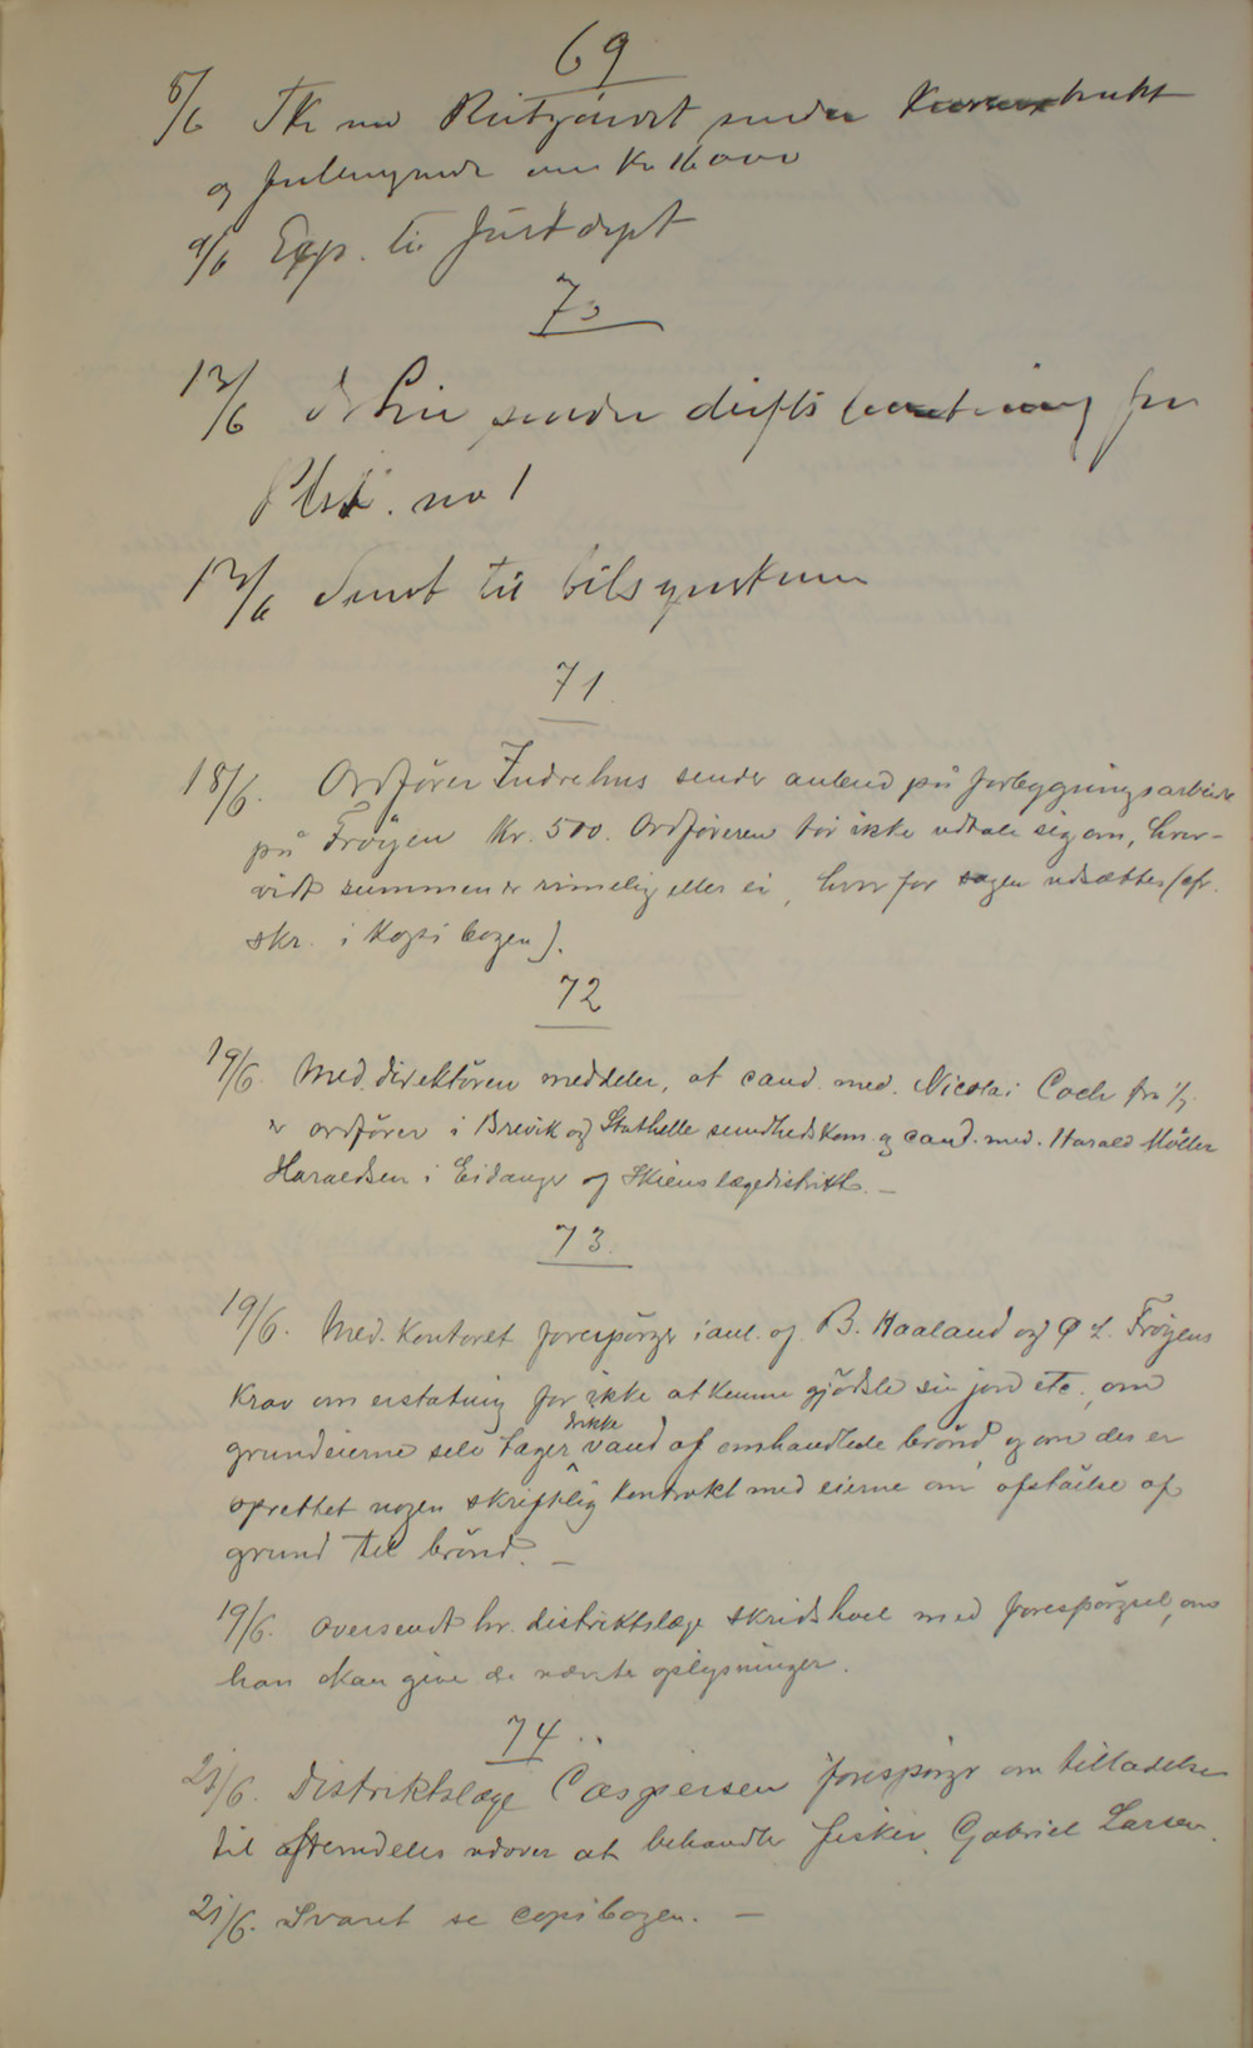 69
8/6 sender
og
9/6 Exp. til Justdept
70
13/6 sender drifts for
no 1
13/6 Sendt til
71
18/6. Ordfører Indrehus sender anbud på forbygningsarbeide
på Frøyen Kr. 500. Ordføreren tør ikke udtale sig om, hvor-
vidt summen er rimelig eller ei, hvorfor sagen udsættes (cfr.
skr. i Kopibogen).
72
19/6. Med. direktøren meddeler, at cand. med. Nicolai Coch fra 1/7
er ordfører i Brevik og Stathelle sundhedskom. og cand. med. Harald Møller
Haraldsen i Eidanger og Skiens lægedistrikt. —
73.
19/6. Med. Kontoret forespørger i anl. af B. Haaland og L. Frøyens
Krav om erstatning for ikke at kunne gjødsle sin jord etc., om
grundeierne selv tager drikkevand af omhandlede brønd, og om der er
oprettet nogen skriftlig kontrakt med eierne om afståelse af
grund til brønd. —
19/6. Oversendt hr. distriktslæge Skridshoel med forespørgsel, om
han kan give de nævnte oplysninger.
74
21/6. Distriktslæge Caspersen forespørger om tilladelse
til fremdeles at behandle fisker Gabriel Larsen.
21/6. Svaret se copibogen. —